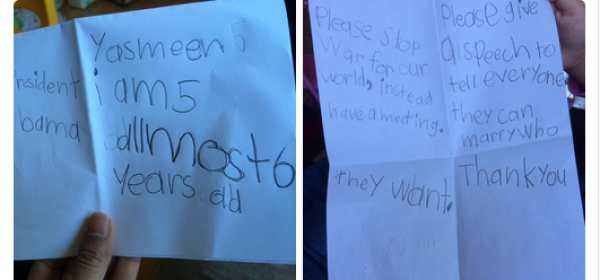 resident
bama
Yasmeen 5
i am 5
allmost 6
years old
Please stop
war for our
world, instead
have a meeting.
Please give
a speech to
tell everyone
they can
marry who
they want.
Thank you